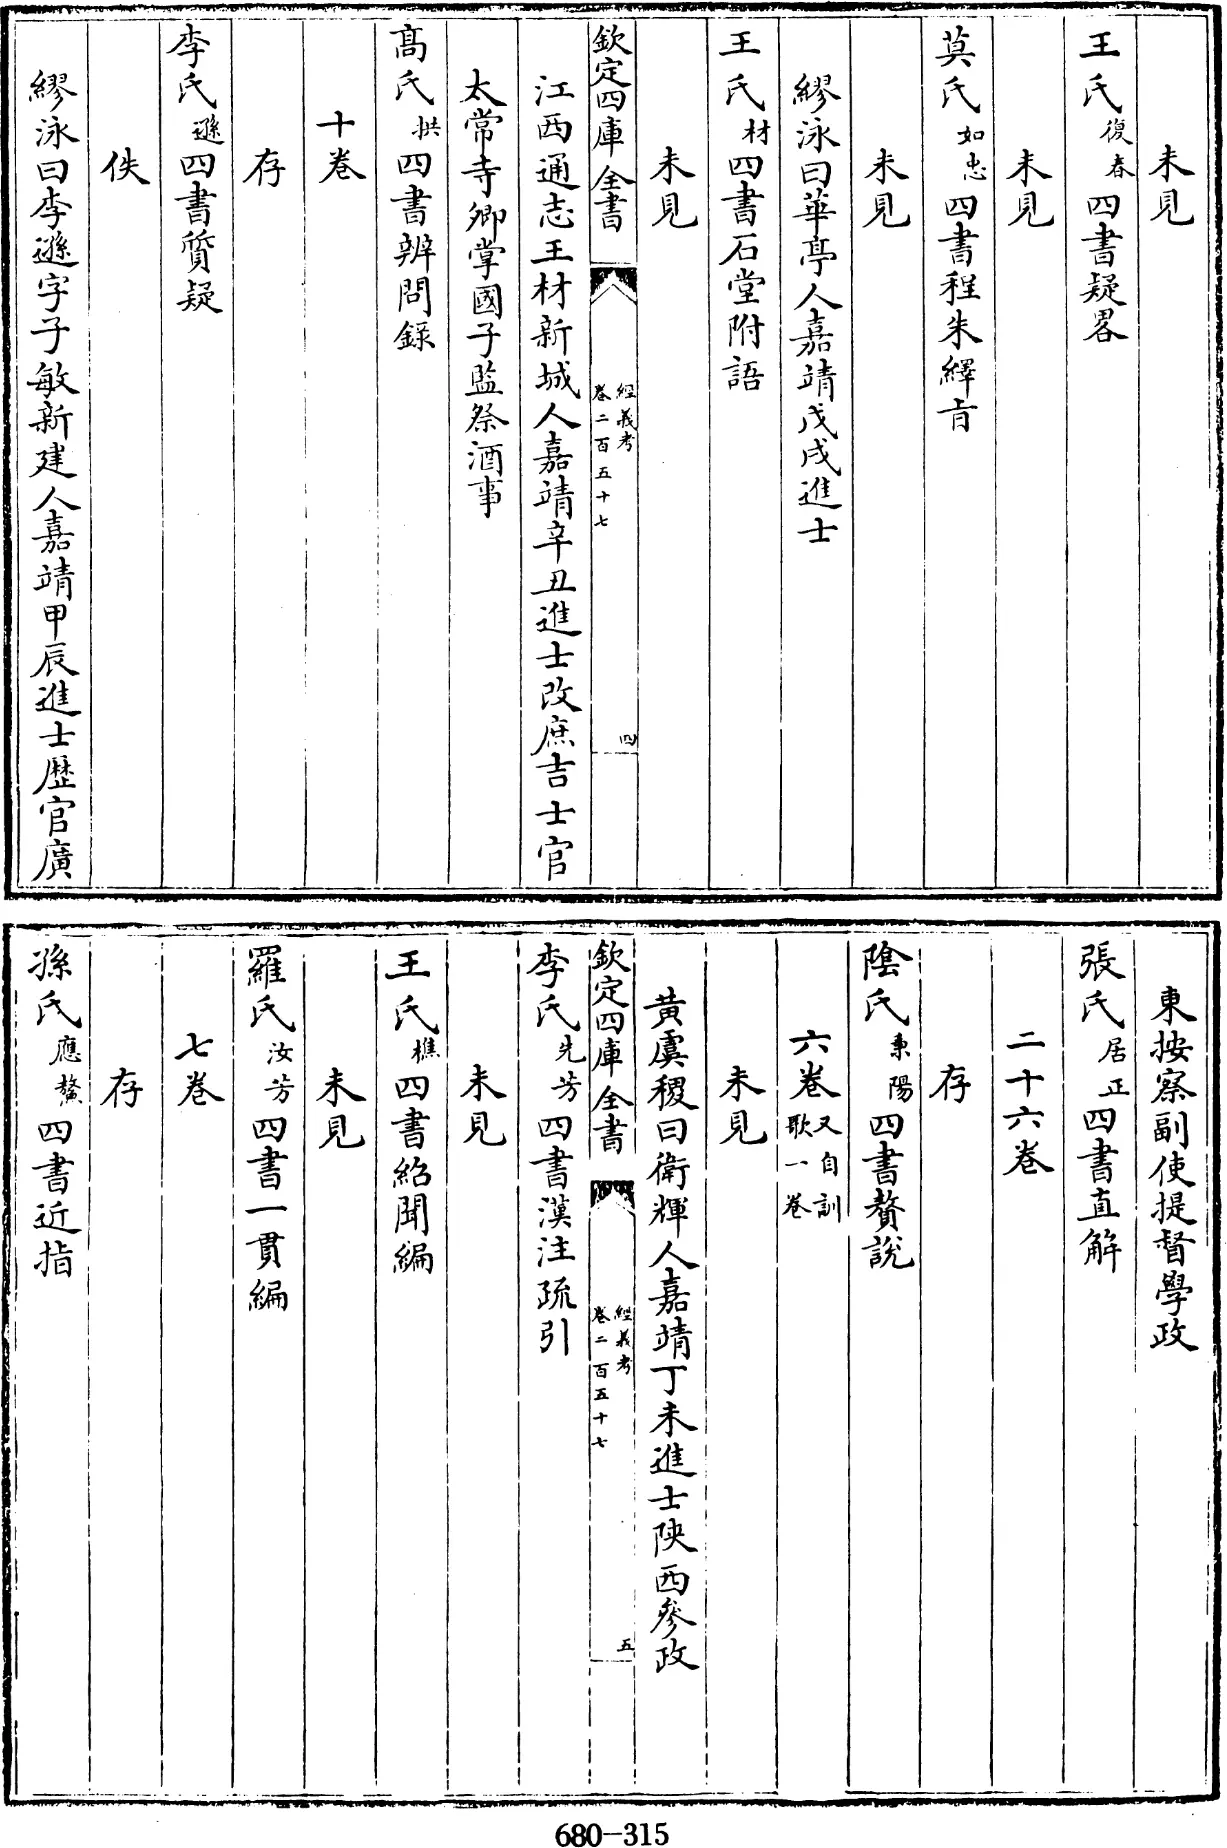 未見
王氏復春四書疑畧
未見
莫氏如忠四書程朱繹旨
未見
繆泳曰華亭人嘉靖戊戌進士
王氏材四書石堂附語
未見
欽定四庫全書
經義考
卷二百五十七
四
江西通志王材新城人嘉靖辛丑進士改庶吉士官
太常寺卿掌國子監祭酒事
高氏拱四書辨問錄
十卷
存
李氏遜四書質疑
佚
繆泳曰李遜字子敏新建人嘉靖甲辰進士歷官廣
東按察副使提督學政
張氏居正四書直解
二十六卷
存
陰氏秉陽四書贅說
六卷又自訓
歌一卷
未見
黃虞稷曰衛輝人嘉靖丁未進士陝西參政
欽定四庫全書
經義考
卷二百五十七
五
李氏先芳四書漢注疏引
未見
王氏樵四書紹聞編
未見
羅氏汝芳四書一貫編
七卷
存
孫氏應鰲四書近指
680-315